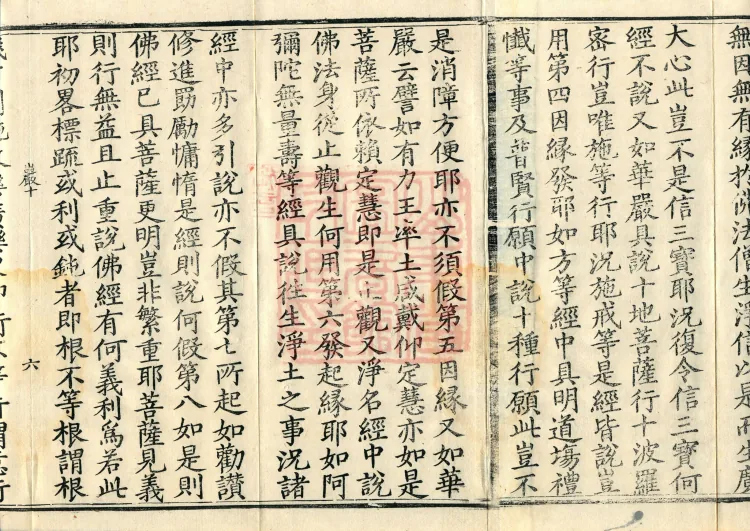 無因無有緣於佛法僧生淨信以是而生廣
大心此豈不是信三寶耶況復令信三寶何
經不說又如華嚴具說十地菩薩行十波羅
密行豈唯施等行耶況施戒等是經皆說豈
用第四因緣發耶如方等經中具明道場禮
懺等事及普賢行願中說十種行願此豈不
是消障方便耶亦不須假第五因緣又如華
嚴云譬如有力王率土咸戴仰定慧亦如是
菩薩所依賴定慧即是止觀又淨名經中說
佛法身從止觀生何用第六發起緣耶如阿
彌陀無量壽等經具說往生淨土之事況諸
經中亦多引說亦不假其第七所起如勸讃
修進勗勵慵惰是經則說何假第八如是則
佛經已具菩薩更明豈非繁重耶菩薩見義
則行無益且止重說佛經有何義利爲若此
耶初畧標䟽或利或鈍者即根不等根謂根
巖十
六